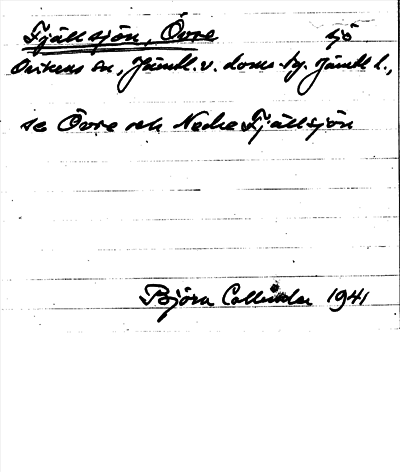 Fjällsjön, Övre sjö
Ovikens sn, Jämtl. v. doms. tg. Jämtl. l.,
se Övre och Nedre Fjällsjön
Björn Collinder 1941